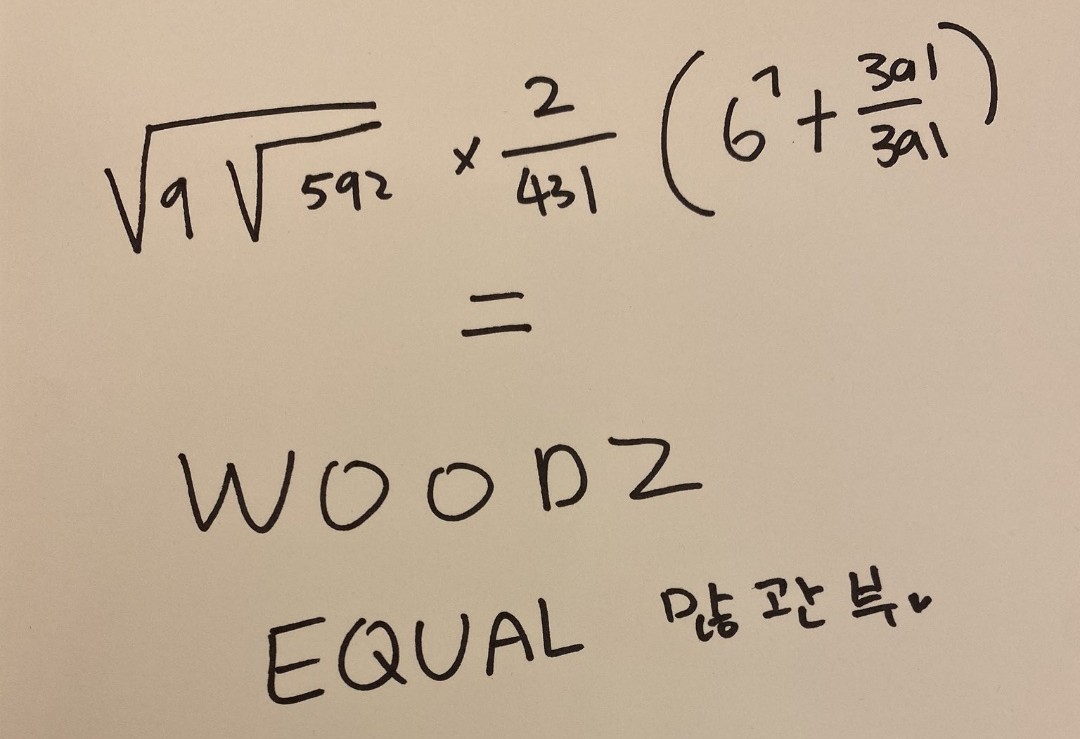 √(9√592) × 2/431 (6⁷ + 391/391)
=
WOODZ
EQUAL 많관부♥